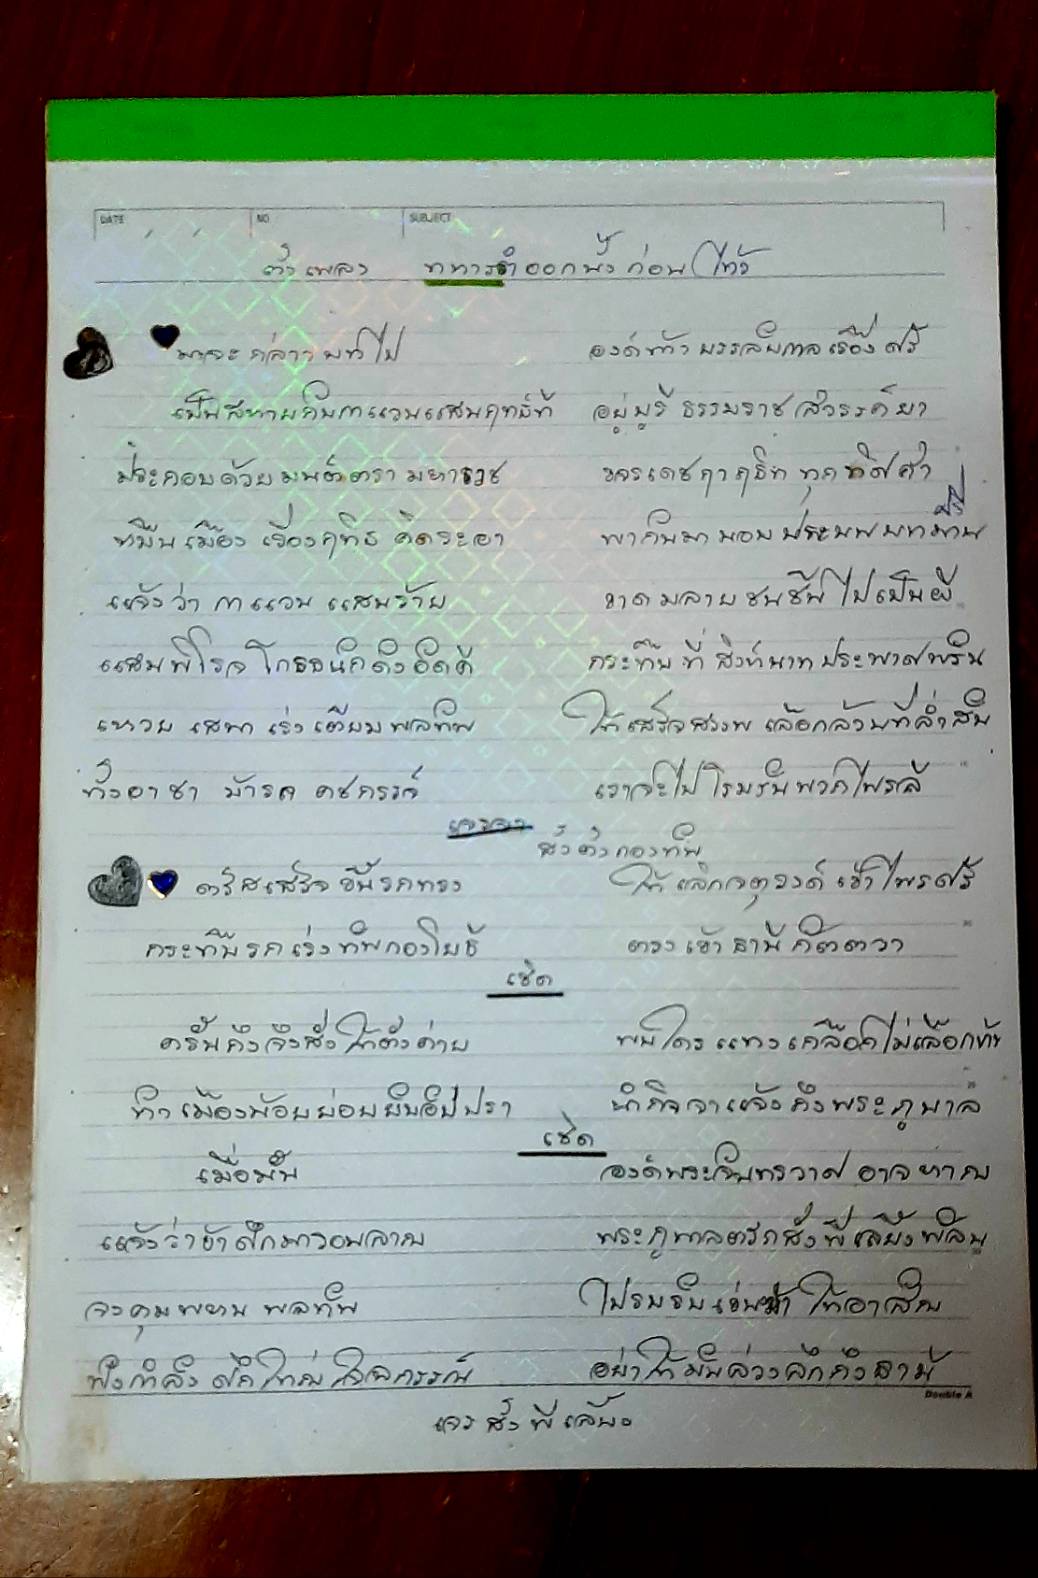 DATE NO SUBJECT
ทหารรำออกนั่งก่อนไหว้
มาจะกล่าวบทไป องค์ท้าว เรืองศรี
เป็นสหายกับกาแวนแสนฤทธี อยู่บูรี ธรรมราช สวรรค์ยา
ประกอบด้วยมนต์ตรา มหาราช ขจรเดชฤาฤทธิ ทุกทิศศา
หมื่นเมือง เรืองฤทธิ คิดระอา พากันมานอบ
แจ้งว่า กาแวน แสนร้าย วายชนชีพ ไปเป็นผี
แสนพิโรจ โกรธนัก ดังอัคคี กระทืบที่ สิงห์นาท ประพาศพรั่น
เหวย เสนา เร่งเตรียมพลทัพ ให้เสร็จสรรพ เลือกล้วนที่ล่ำสัน
ทั้งอาชา ม้ารถ คชกรรจ์ เราจะไปโรมรันพวกไพรี
สั่งตั้งกองทัพ
ตรัสเสร็จ ขึ้นรถทรง ให้เลิกจตุรงค์ เข้าไพรศรี
กระทืบรถเร่งทัพกองโยธี ตรงเข้าธานี
เชิด
ครั้นถึงจึงสั่งให้ตั้งค่าย พบใคร แทง ไม่เลือกหน้า
นำกิจจาแจ้งถึงพระภูบาล
เชิด
เมื่อนั้น องค์พระจันทรวาศ อาจหาญ
แจ้งว่าข้าศึกมารอนลาญ พระภูบาลตรัสสั่งพี่เลี้ยงพลัน
จงคุมพหลพลทัพ ไปรบรับเข่นฆ่า ให้อาสัญ
ฟังกำลังศึกใหญ่ใจฉกรรจ์ อย่าให้มันล่วงลึกถึงธานี
สั่งพี่เลี้ยง
Double A